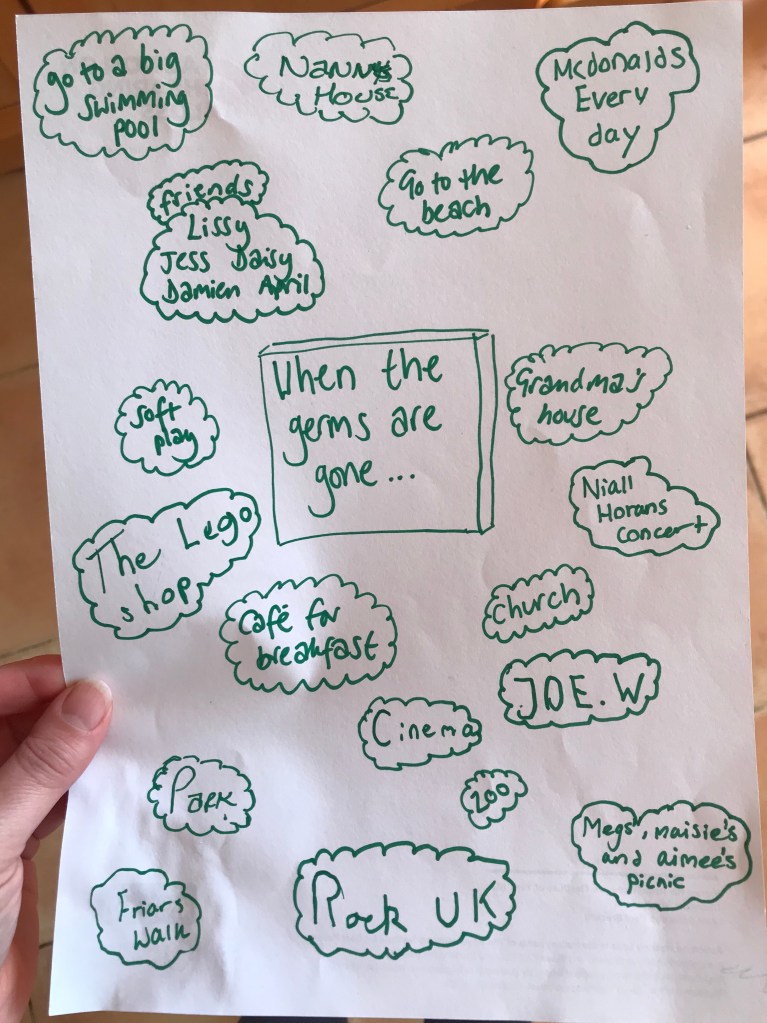 go to a big
swimming
pool
Nannys
House
Mcdonalds
Every
day
Go to the
beach
friends
Lissy
Jess Daisy
Damien April
When the
germs are
gone...
Grandma's
house
Soft
play
Niall
Horans
concert
The Lego
shop
Café for
breakfast
Church
JOE.W
Cinema
Park
zoo
Megs', maisie's
and aimee's
picnic
Friars
Walk
Rock UK